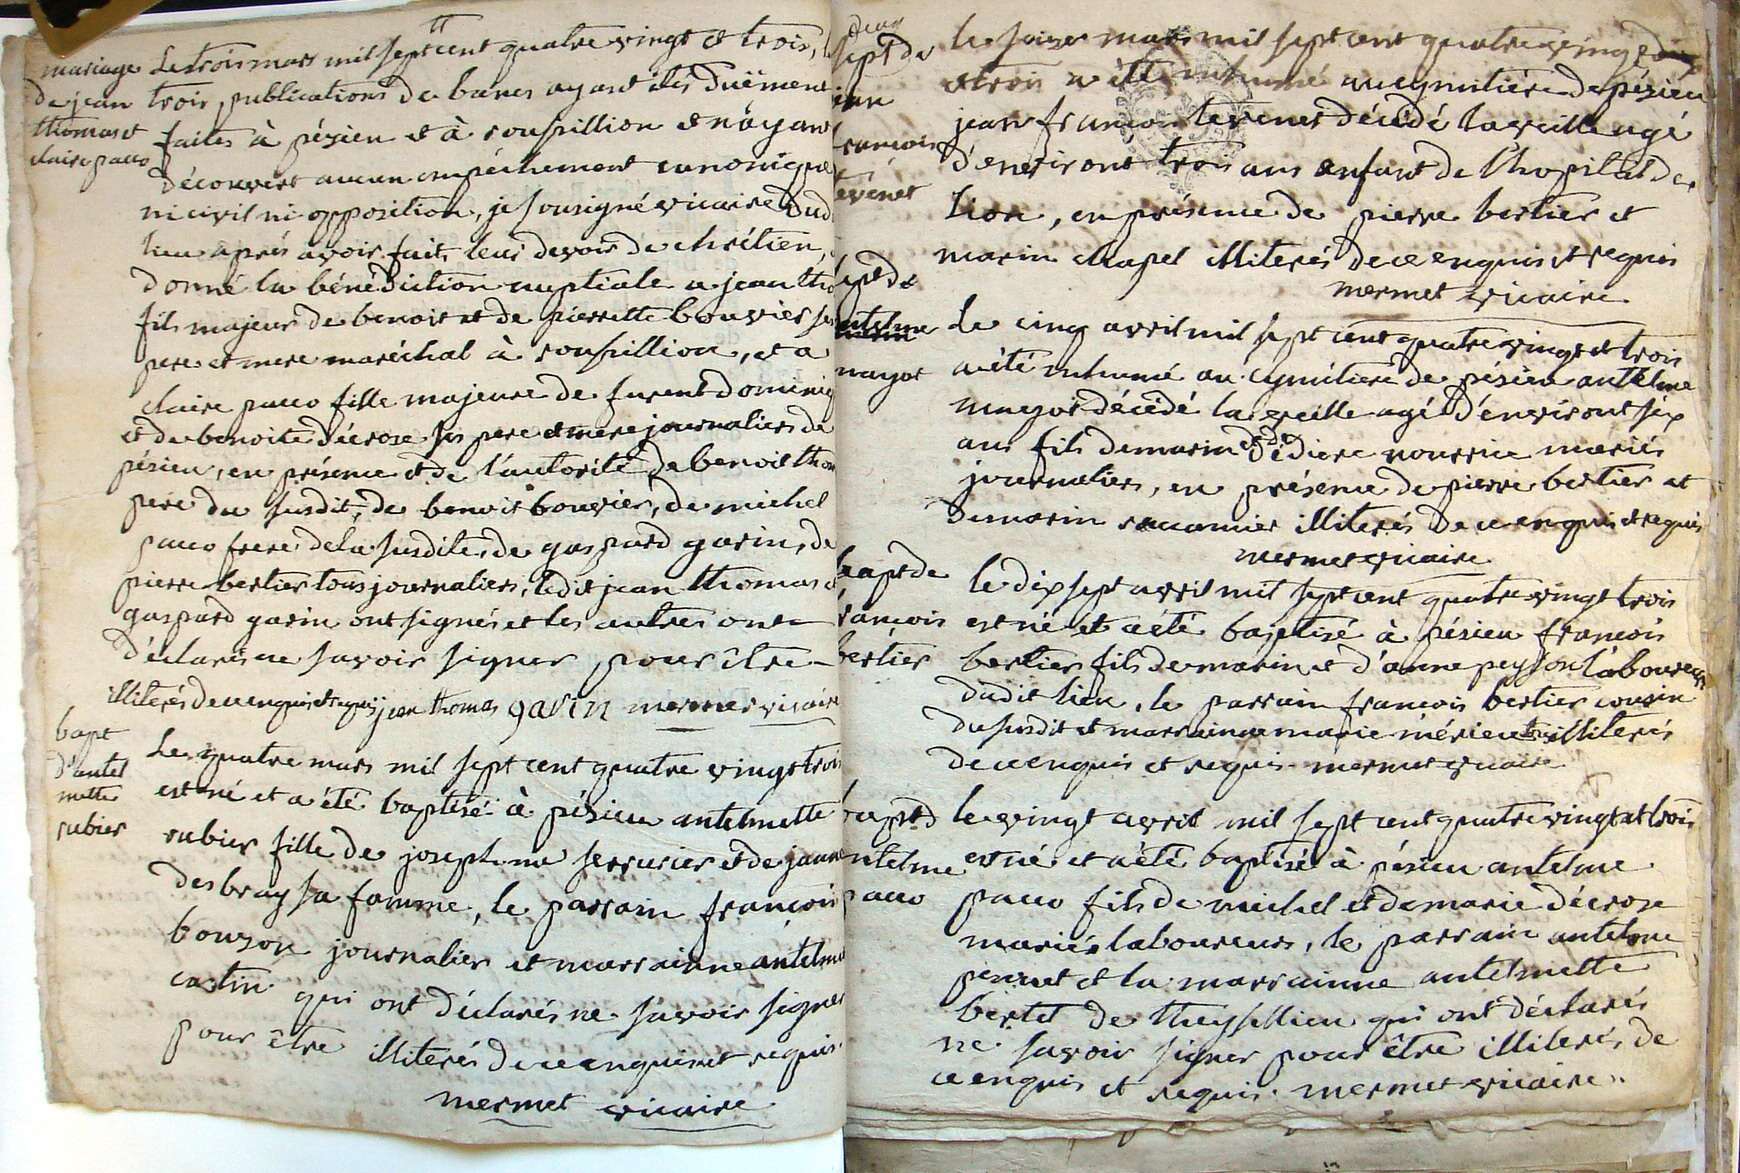 mariage
de jean
thomas et
claire pacco
Le trois mars mil sept cent quatre vingt et trois,
trois publications de bancs ayant étés duëment
faites à pésieu et à roussillion et n'ayant
découvert aucun empéchement canonique
ni civil ni opposition, je sousigné vicaire dud
lieu aprés avoir fait leur devoir de chrétien,
donné la bénédiction nuptiale a jean tho
fils majeur de benoit et de pierrette bouvier ses
pere et mere maréchal à roussillion, et a
claire pacco fille majeure de furent dominiq
et de benoite décrose ses pere et mere journaliers de
pésieu, en présence et de l'autorité de benoit thom
pere du susdit, de benoit bouvier, de michel
pacco frere de la susdite, de gaspard garin, de
pierre bertier tous journaliers, ledit jean thomas et
gaspard garin ont signés et les autres ont
déclarés ne savoir signer, pour être
illiterés de ce enquis et requis jean thomas garin mermet vicaire
bapt
d'antel
mette
rubier
Le quatre mars mil sept cent quatre vingt trois
est né et a été baptisé à pésieu antelmette
rubier fille de joseph serrurier et de jeanne
desbray sa famme, le parrain françois
bouzon journalier et marrainne antelmet
castin qui ont déclarés ne savoir signer
pour être illiterés de ce enquis et requis.
mermet vicaire
sept de
jean
francois
tevenet
le seize mars mil sept cent quatre vingt
et trois a été inhumé au cymitiére de pésieu
jean francois tevenet décédé la veille agé
d'environt trois ans enfant de l'hopital de
lion, en présence de pierre bertier et
marin chapel illiterés de ce enquis et requis
mermet vicaire
sept de
antelme
mayot
Le cinq avril mil sept cent quatre vingt et trois
a été inhumé au cymitiere de pésieu antelme
mayot décédé la veille agé d'environt six
ans fils de marin et de d'ediere nourrice mariés
journaliers, en présence de pierre bertier et
de marin ... illiterés de ce enquis et requis
mermet vicaire
bapt de
francois
bertier
le dix sept avril mil sept cent quatre vingt trois
est né et a été baptisé à pésieu francois
bertier fils de marin et d'anne peyson laboureurs
dudit lieu, le parrain francois bertier cousin
du susdit et marrainne marie mérieu tous illiterés
de ce enquis et requis mermet vicaire
bapt d
antelme
pacco
le vingt avril mil sept cent quatre vingt et trois
est né et a été baptisé à pésieu antelme
pacco fils de michel et de marie décrose
mariés laboureurs, le parrain antelme
pernet et la marrainne antelmette
bertet de theysillieu qui ont déclarés
ne savoir signer pour être illiterés, de
ce enquis et requis. mermet vicaire.